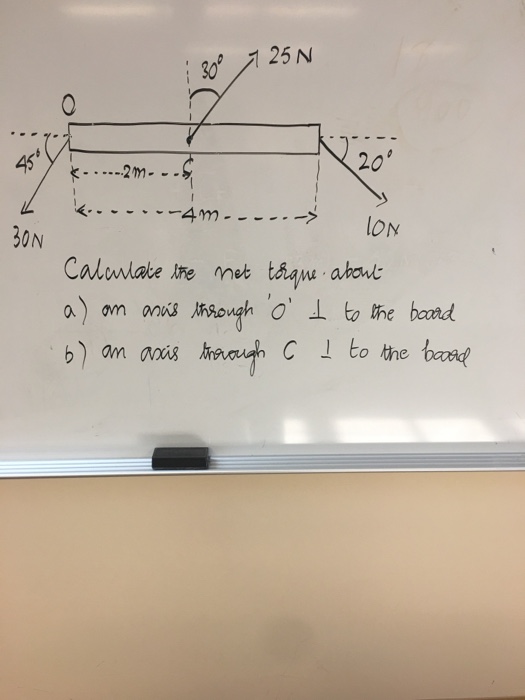 30° 25N
O
45° 20°
2m C
4m
30N 10N
Calculate the net torque about
a) an axis through 'O' ⊥ to the board
b) an axis through C ⊥ to the board